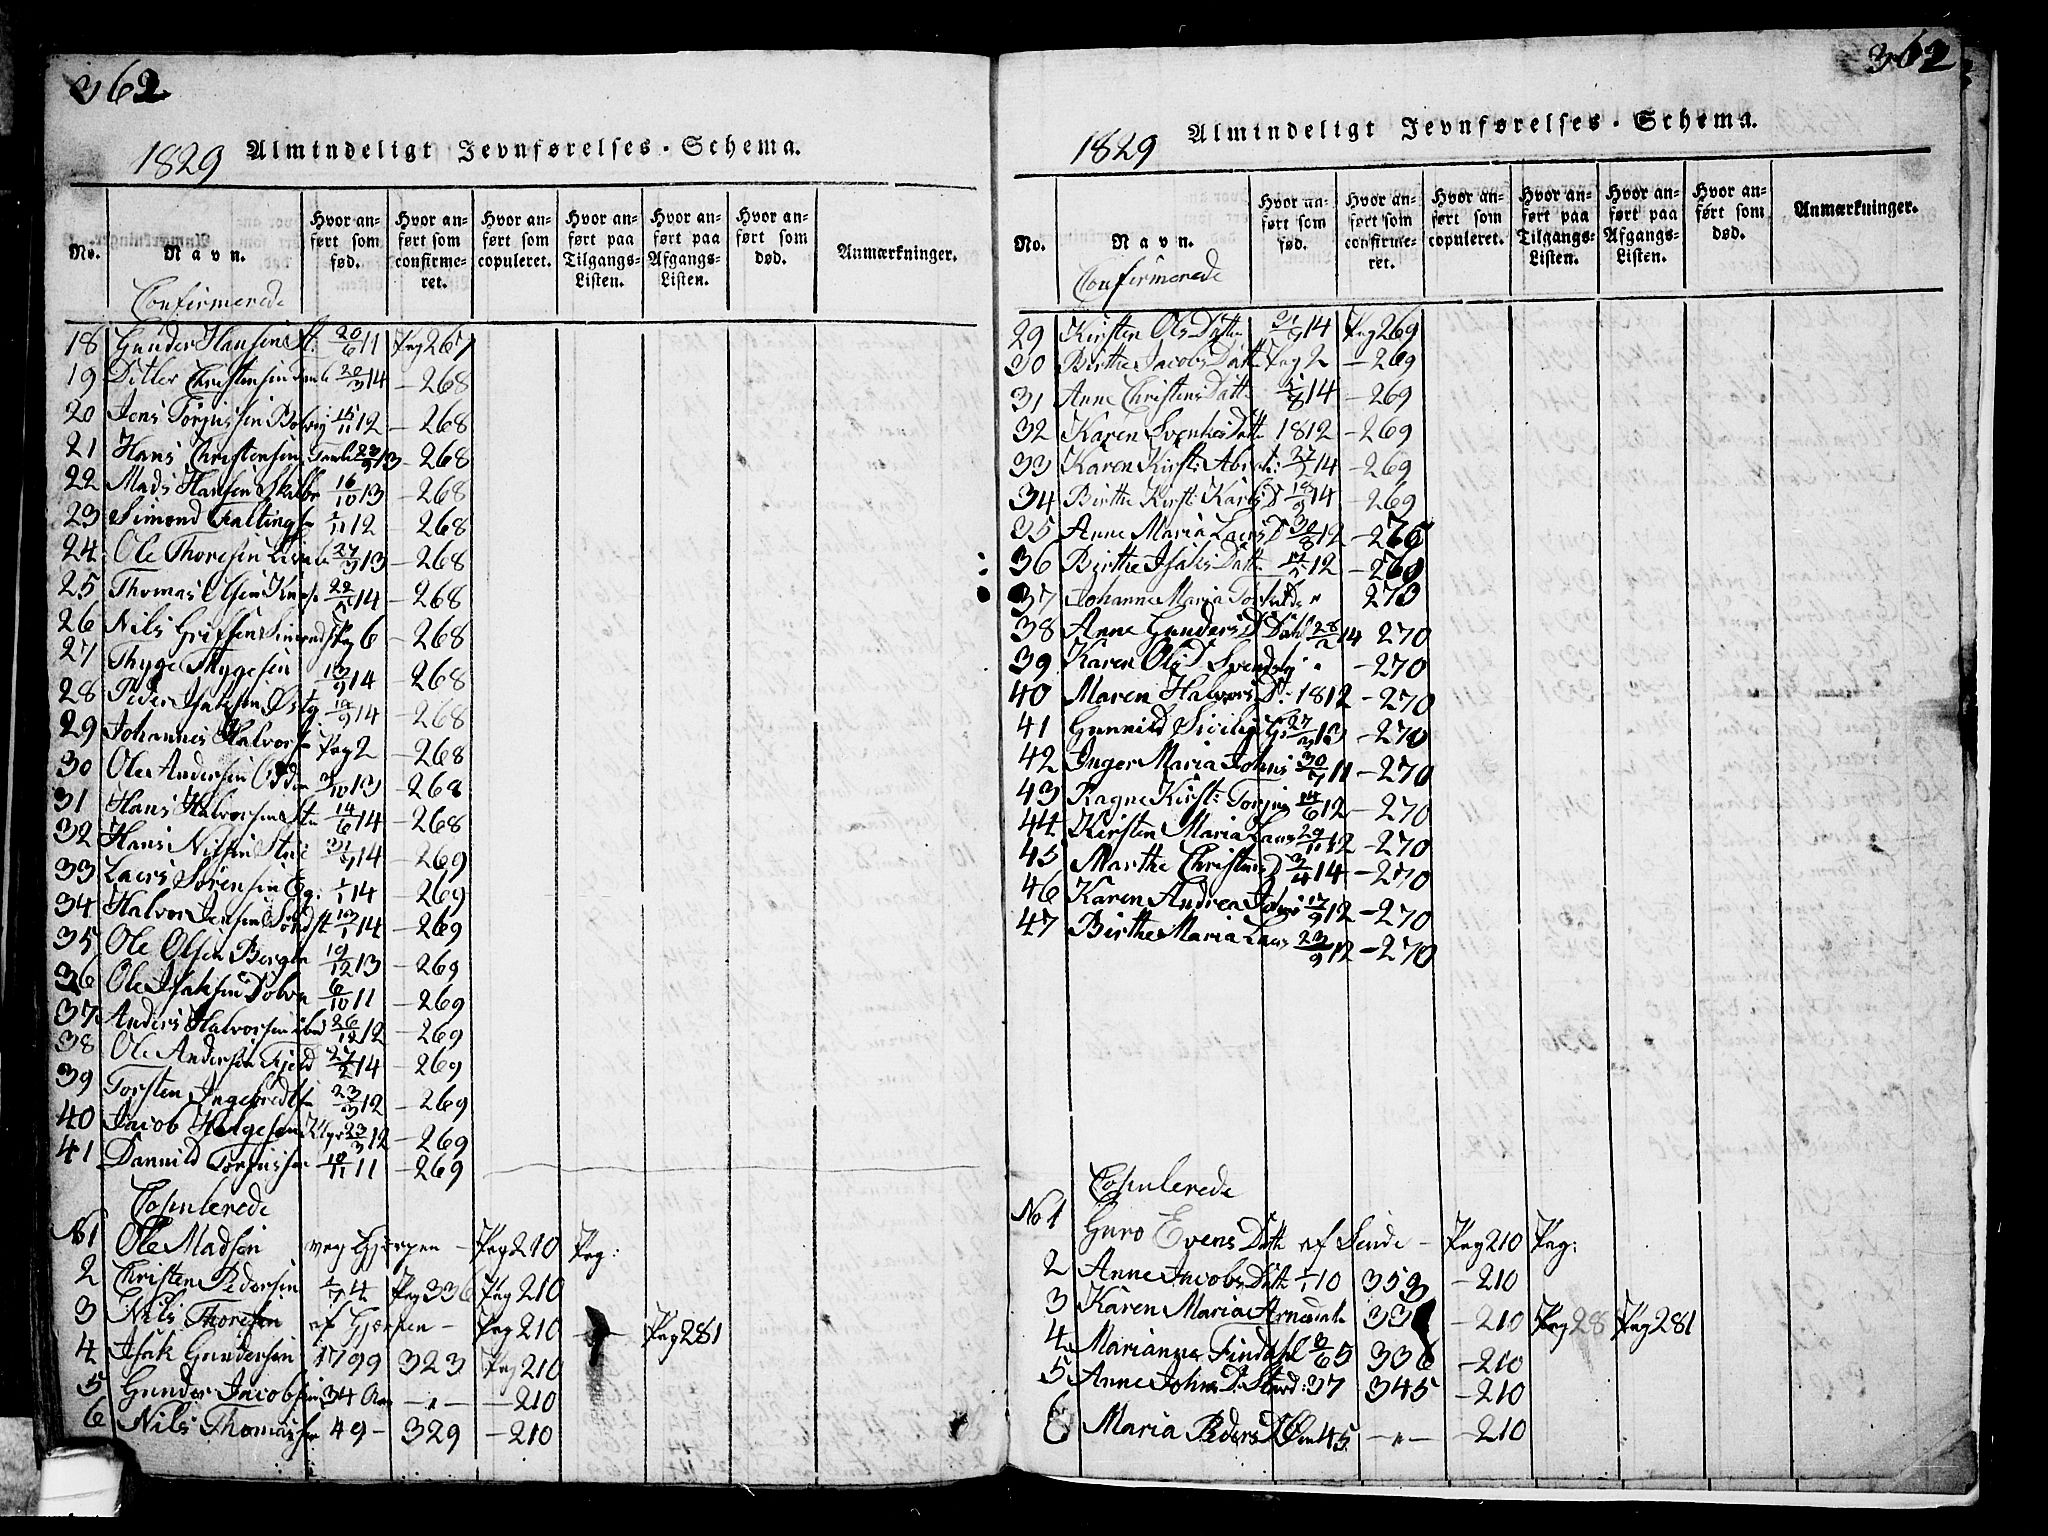 362
1829 Almindeligt Jevnførelses-Schema.
No. Navn. Hvor anført som fød. Hvor anført som confirmeret. Hvor anført som copuleret. Hvor anført paa Tilgangs-Listen. Hvor anført paa Afgangs-Listen. Hvor anført som død. Anmærkninger.
Confirmerede
18 Gunder Hansen St: 20/6 11 Pag 267
19 Ditler Christensen 20/3 14 — 268
20 Jens Torjussen Bolvig 15/11 12 — 268
21 Hans Christensen 23/9 13 — 268
22 Mads Hansen Skilbr 16/10 13 — 268
23 Simond Faltings 1/11 12 — 268
24 Ole Thoresen 27/3 13 — 268
25 Thomas Olsen 14 — 268
26 Nils Gressen Pag 6 — 268
27 Thyge Thygesen 13/9 14 — 268
28 Peder Isaksen Østg 18/9 14 — 268
29 Johannes Halvors Pag 2 — 268
30 Ole Andersen 3/10 13 — 268
31 Hans Halvorsen 14/6 14 — 268
32 Hans Nilsen 31/9 14 — 269
33 Laers Sørensen Eg: 1/1 14 — 269
34 Halvor Jensen 13/1 14 — 269
35 Ole Olsen Bergb 19/12 13 — 269
36 Ole Isaksen Dolva 6/10 11 — 269
37 Anders Halvorsen ibid 26/12 12 — 269
38 Ole Andersen Fjeld 27/2 14 — 269
39 Torsten Ingebredts 23/3 12 — 269
40 Jacob Helgesen 23/3 12 — 269
41 Dannild Torjussen 18/11 11 — 269
Copulerede
No 1 Ole Madsen veg Gjerpen — Pag 210 Pag:
2 Christen Pedersen 1/7 4 Pag 336 Pag 210
3 Nils Thoresen af Gjerpen — Pag 210 Pag 281
4 Isak Gundersen 1799 323 Pag 210
5 Gunder Jacobsen 34 Aar — " — — 210
6 Nils Thomassen 49 — 329 — 210
362
1829 Almindeligt Jevnførelses-Schema.
No. Navn. Hvor anført som fød. Hvor anført som confirmeret. Hvor anført som copuleret. Hvor anført paa Tilgangs-Listen. Hvor anført paa Afgangs-Listen. Hvor anført som død. Anmærkninger.
Confirmerede
29 Kirsten Ols Datter 21/9 14 Pag 269
30 Birthe Jacobs Datt Pag 2 — 269
31 Anne Christens Datt 1/8 14 — 269
32 Karen Svenkes Datt 1812 — 269
33 Karen Kirst: Abrah: 14 — 269
34 Birthe Kirst: Karls D 14 — 269
35 Anne Maria Laers D 30/8 12 —
36 Birthe Isaks Datt 12 —
37 Johanne Maria " 273
38 Anne Gunders D Dahl 28/2 14 270
39 Karen Ols D " — 270
40 Maren Halvors D: 1812 — 270
41 Gunnild Sicilie 27 13 — 270
42 Inger Maria Johns 30/7 11 — 270
43 Ragne Kirst: Torjus 14/6 12 — 270
44 Kirsten Maria Laers 29/11 12 — 270
45 Marthe Christens D 3/4 14 — 270
46 Karen Andrea Johns 17/9 12 — 270
47 Birthe Maria Laers 23/9 12 — 270
Copulerede
No 1 Guro Evens Datt af Sende — Pag 210 Pag:
2 Anne Jacobs Datt 1/1 10 353 — 210
3 Karen Maria Arnedatt — 210 Pag 28 Pag 281
4 Marianne Findahl 3/6 5 336 — 210
5 Anne Johns D 37 345 — 210
6 Maria Peders D 45 — " — — 210